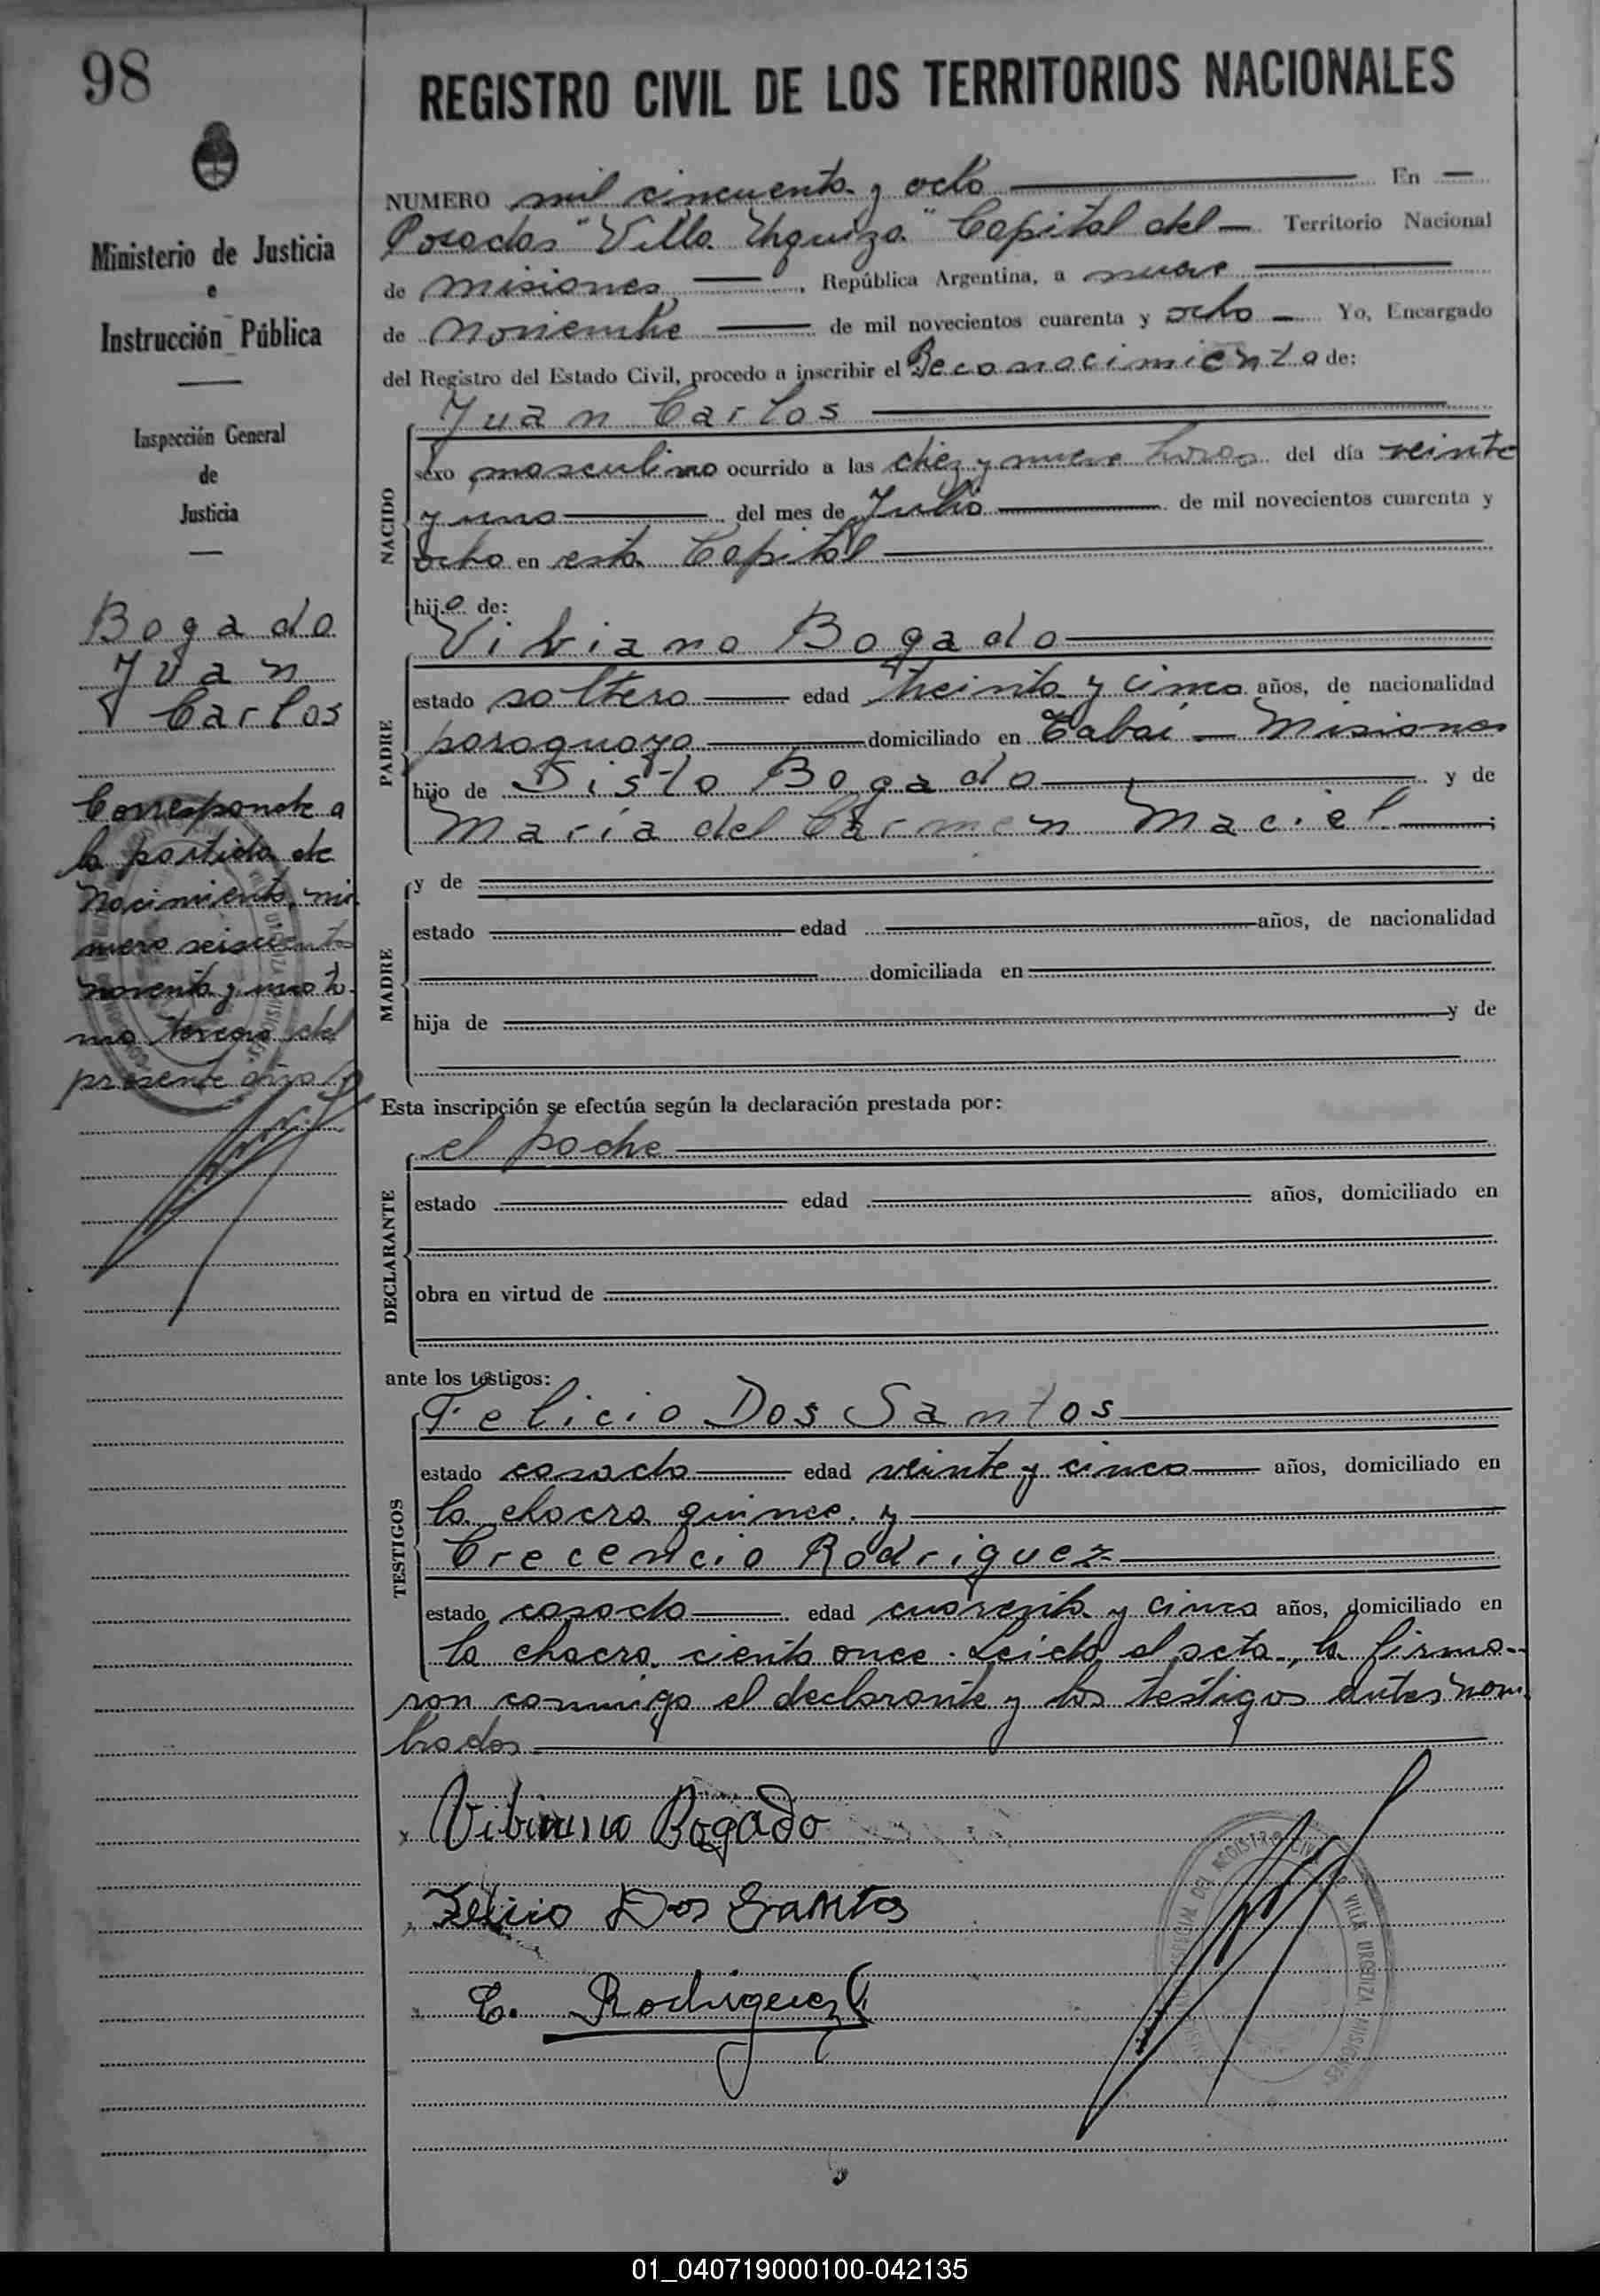 98
REGISTRO CIVIL DE LOS TERRITORIOS NACIONALES
Ministerio de Justicia
e
Instrucción Pública
Inspección General
de
Justicia
Bogado
Juan
Carlos
Corresponde a
la partida de
Nacimiento, nú
mero seiscientos
noventa y uno to-
mo tercero del
presente año
NUMERO mil cincuenta y ocho En
Posadas "Villa Urquiza" Capital del Territorio Nacional
de Misiones, República Argentina, a nueve
de Noviembre de mil novecientos cuarenta y ocho Yo, Encargado
del Registro del Estado Civil, procedo a inscribir el Reconocimiento de:
Juan Carlos
NACIDO
sexo masculino ocurrido a las diez y nueve horas del día veinte
y uno del mes de Julio de mil novecientos cuarenta y
ocho en esta Capital
hijo de:
Vibiano Bogado
PADRE
estado soltero edad treinta y cinco años, de nacionalidad
paraguaya domiciliado en Tabaí - Misiones
hijo de Sisto Bogado y de
María del Carmen Maciel
y de
MADRE
estado edad años, de nacionalidad
domiciliada en
hija de y de
Esta inscripción se efectúa según la declaración prestada por:
el padre
DECLARANTE
estado edad años, domiciliado en
obra en virtud de
ante los testigos:
Felicio Dos Santos
TESTIGOS
estado casado edad veinte y cinco años, domiciliado en
la chacra quince y
Crecencio Rodriguez
estado casado edad cuarenta y cinco años, domiciliado en
la chacra ciento once. Leída el acta, la firma-
ron conmigo el declarante y los testigos antes nom
brados
Vibiano Bogado
Felicio Dos Santos
C. Rodriguez
REGISTRO CIVIL VILLA URQUIZA MISIONES
01_040719000100-042135